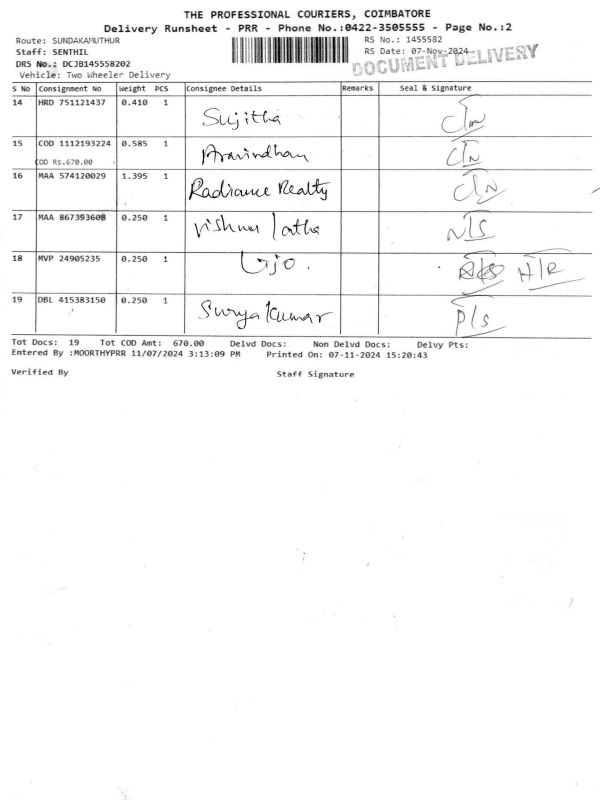 THE PROFESSIONAL COURIERS, COIMBATORE
Delivery Runsheet - PRR - Phone No.:0422-3505555 - Page No.:2
Route: SUNDAKAMUTHUR RS No.: 1455582
Staff: SENTHIL RS Date: 07-Nov-2024
DOCUMENT DELIVERY
DRS No.: DCJB145558202
Vehicle: Two Wheeler Delivery
S No Consignment No Weight PCS Consignee Details Remarks Seal & Signature
14 HRD 751121437 0.410 1 Sujitha
15 COD 1112193224 0.585 1 Aravindhan C/N
COD Rs.670.00
16 MAA 574120029 1.395 1 Radiance Realty C/N
17 MAA 867393608 0.250 1 Vishnu latha N/S
18 MVP 24905235 0.250 1 Gjo. H/R
19 DBL 415383150 0.250 1 SuryaKumar P/S
Tot Docs: 19 Tot COD Amt: 670.00 Delvd Docs: Non Delvd Docs: Delvy Pts:
Entered By :MOORTHYPRR 11/07/2024 3:13:09 PM Printed On: 07-11-2024 15:20:43
Verified By Staff Signature